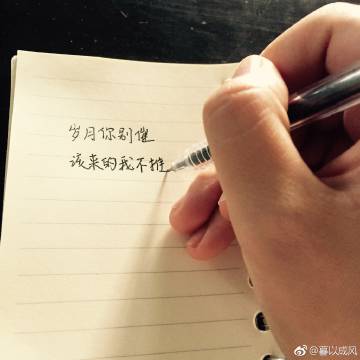 岁月你别催
该来的我不推
@暮以成风